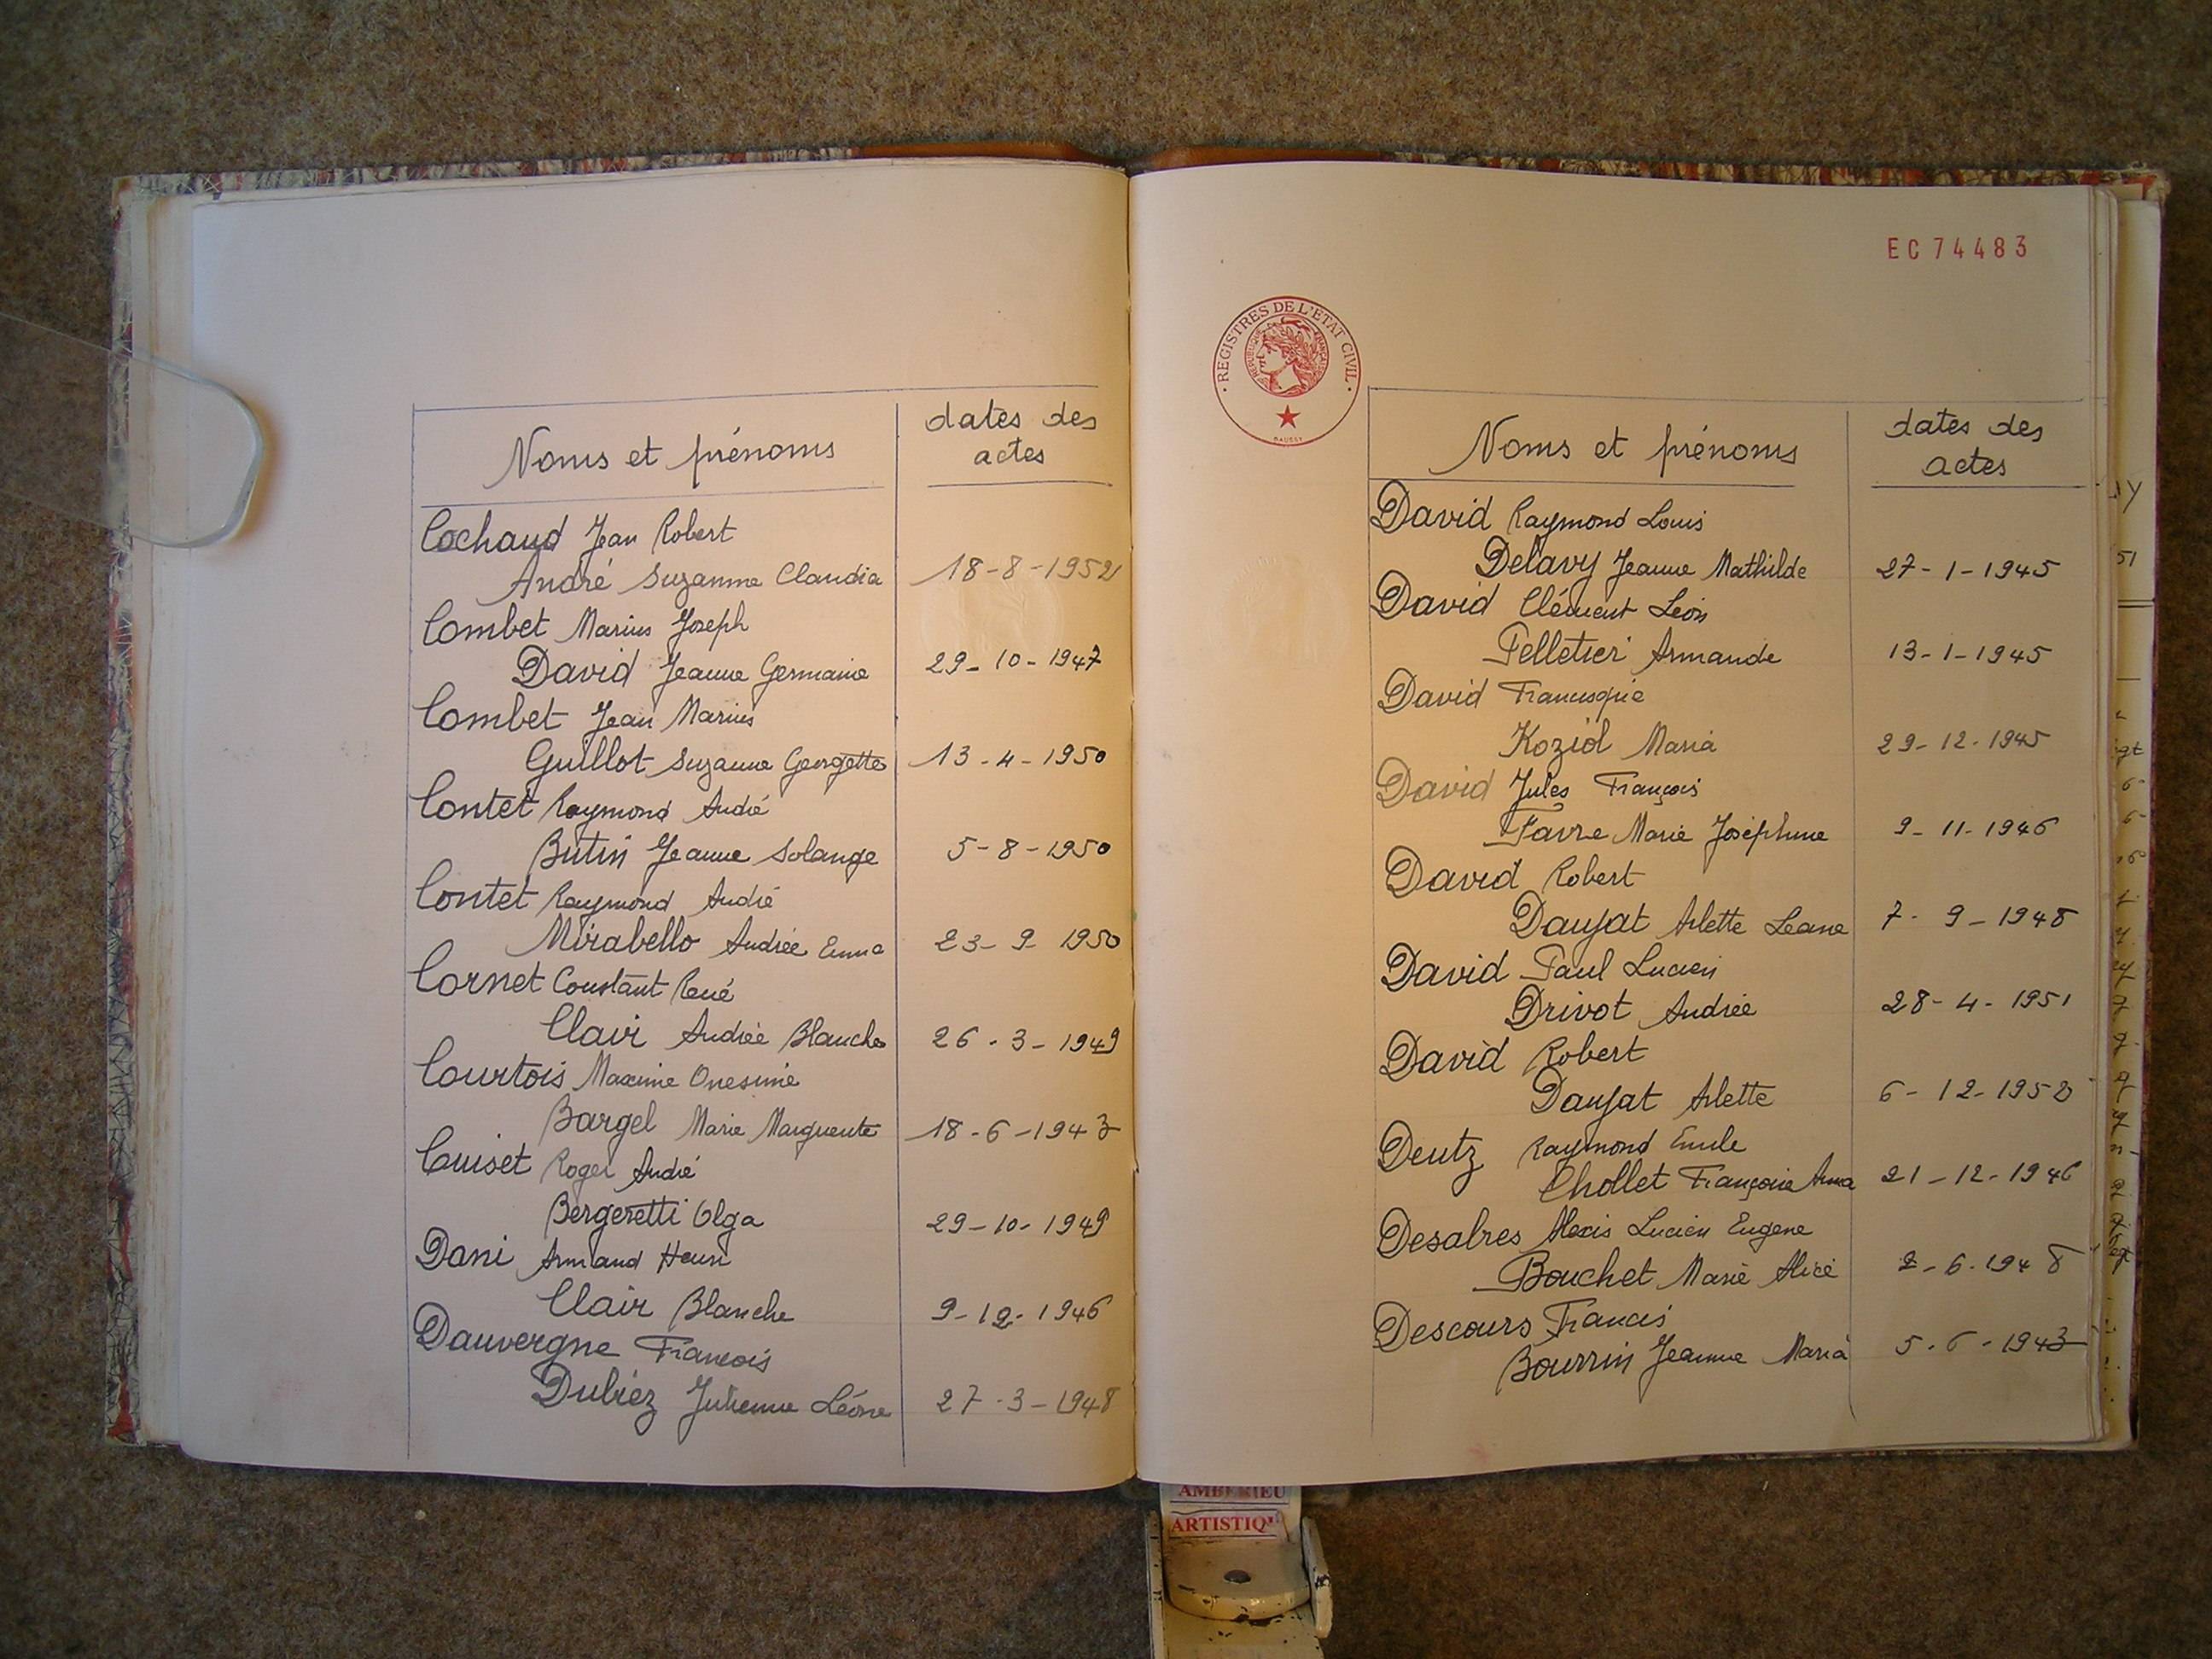 Noms et prénoms
dates des
actes
Cochaud Jean Robert
André Suzanne Claudia 18-8-1952
Combet Marius Joseph
David Jeanne Germaine 29-10-1947
Combet Jean Marius
Guillot Suzanne Georgette 13-4-1950
Contet Raymond André
Butin Jeanne Solange 5-8-1950
Contet Raymond André
Mirabello Andrée Emma 23-9 1950
Cornet Constant René
Clair Andrée Blanche 26-3-1949
Courtois Maxime Onesime
Bargel Marie Marguerite 18-6-1943
Cuiset Roger André
Bergeretti Olga 29-10-1949
Dani Armand Henri
Clair Blanche 9-12-1946
Dauvergne François
Dubiez Julienne Léone 27-3-1948
EC 74483
REGISTRES DE L'ETAT CIVIL
REPUBLIQUE FRANÇAISE
Noms et prénoms
dates des
actes
David Raymond Louis
Delavy Jeanne Mathilde 27-1-1945
David Clément Léon
Pelletier Armande 13-1-1945
David Francisque
Koziol Maria 29-12-1945
David Jules François
Favre Marie Joséphine 9-11-1946
David Robert
Daujat Arlette Leane 7-9-1948
David Paul Lucien
Drivot Andrée 28-4-1951
David Robert
Daujat Arlette 6-12-1952
Deutz Raymond Emile
Chollet Françoise Anna 21-12-1946
Desalres Alexis Lucien Eugene
Bouchet Marie Alice 2-6-1948
Descours Francis
Bourrin Jeanne Maria 5-6-1943
AMBERIEU
ARTISTIQU